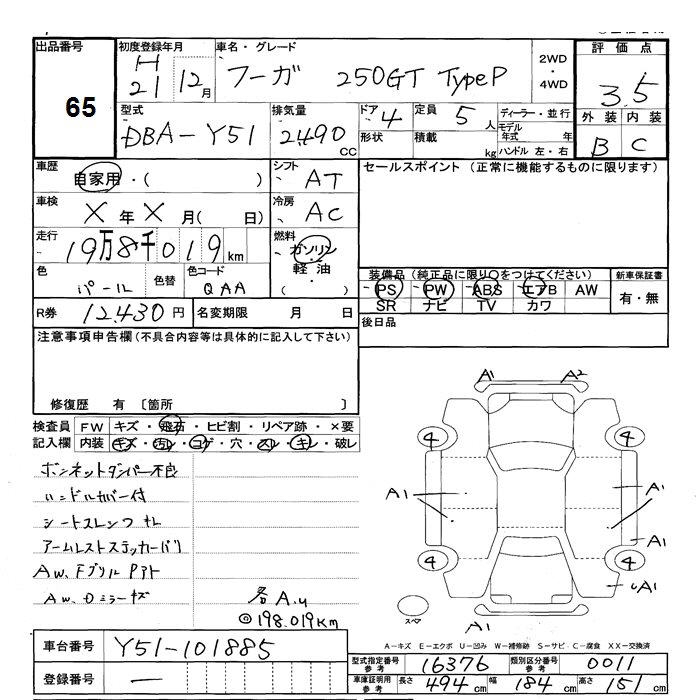 出品番号 初度登録年月 車名・グレード 評価点
65
H 21 12月 フーガ 250GT TypeP 2WD・4WD 3.5
型式 排気量 ドア 定員 ディーラー・並行 外装 内装
DBA-Y51 2490 CC 4 5 人 モデル年式 年 B C
形状 積載 kg ハンドル 左・右
車歴 自家用・( ) シフト AT セールスポイント (正常に機能するものに限ります)
車検 X 年 X 月( 日) 冷房 AC
走行 19万8千019 km 燃料 ガソリン 軽油
色 パール 色替 色コード QAA 装備品 (純正品に限り○をつけてください) 新車保証書
PS PW ABS エアB AW 有・無
SR ナビ TV カワ
R券 12,430 円 名変期限 月 日 後日品
注意事項申告欄 (不具合内容等は具体的に記入して下さい)
修復歴 有 〔箇所 〕
検査員 FW キズ・飛石・ヒビ割・リペア跡・×要
記入欄 内装 キズ・汚レ・コゲ・穴・スレ・キレ・破レ
ボンネットダンパー不良
ハンドルカバー付
シートスレシワキレ
アームレストステッカーバリ
AW、Fグリル Pアト
AW、Dミラーキズ
各A.U
◎198.019km
A1 A2
4 4
A1 A1
A1
4 4
A1
A1
スペア
A-キズ E-エクボ U-凹み W-補修跡 S-サビ C-腐食 XX-交換済
車台番号 Y51-101885
登録番号 ー
型式指定番号 参考 16376 類別区分番号 参考 0011
車庫証明用 参考 長さ 494 cm 幅 184 cm 高さ 151 cm